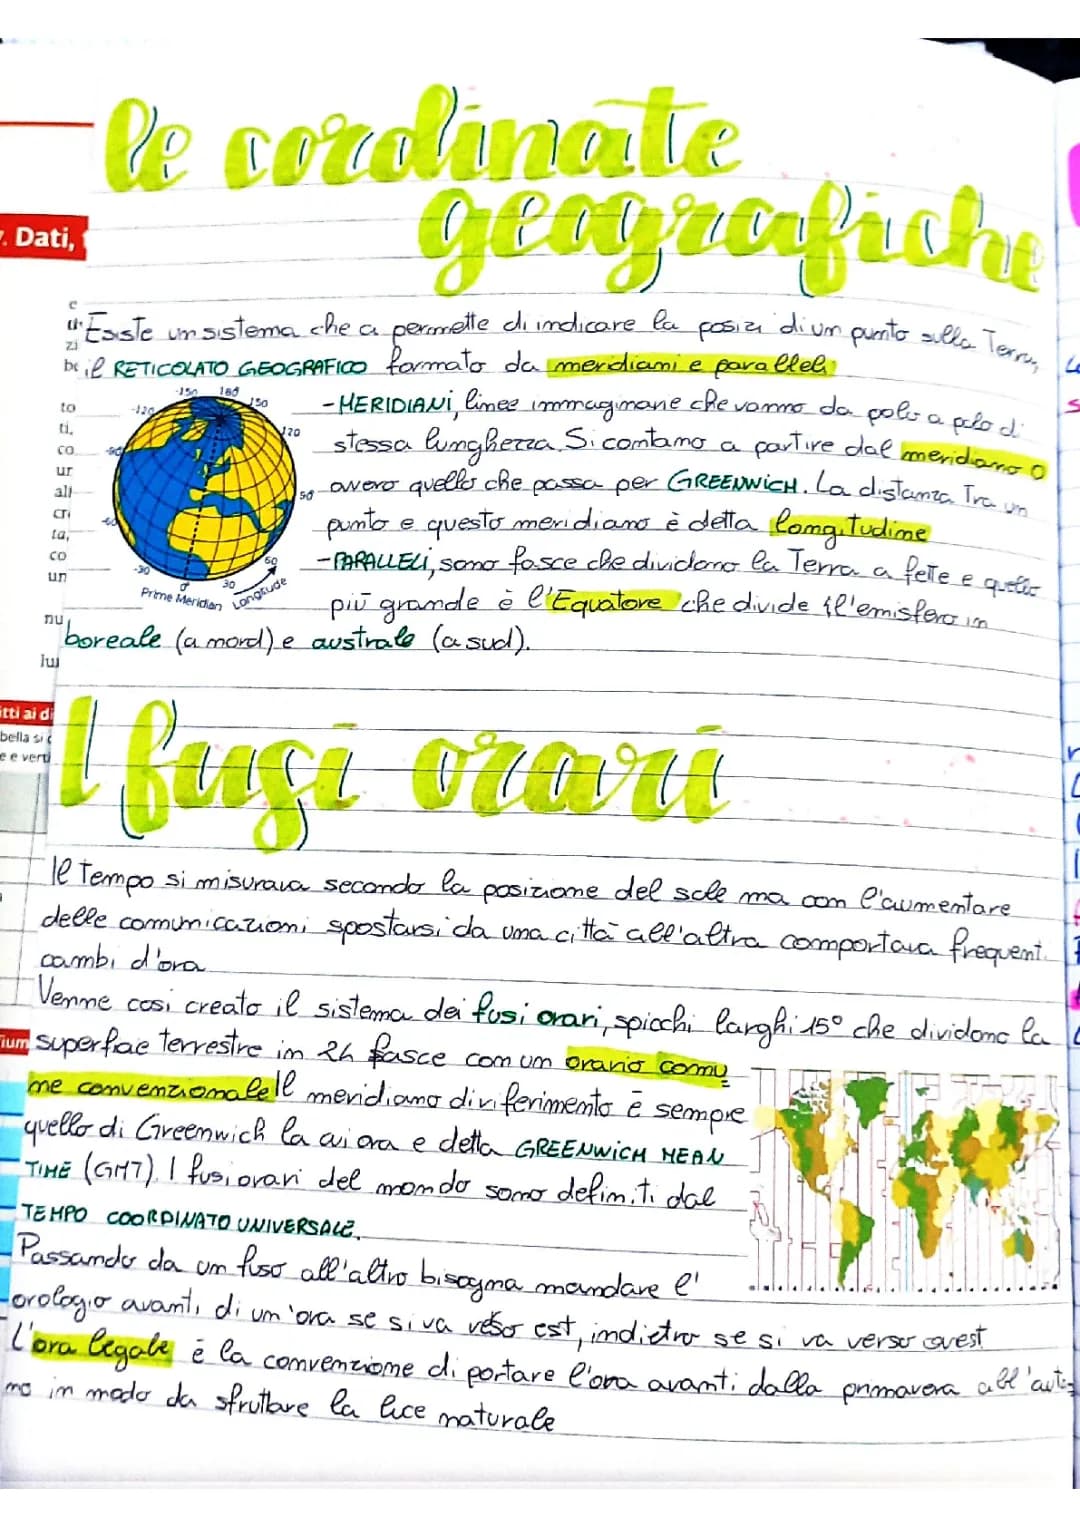 le cordinate
geografiche
. Dati,
Esiste un sistema che ci permette di indicare la posizi di un punto sulla Terra,
il RETICOLATO GEOGRAFICO formato da meridiani e paralleli
-MERIDIANI, linee immaginarie che vanno da polo a polo di
stessa lunghezza. Si contano a partire dal meridiano 0
ovvero quello che passa per GREENWICH. La distanza Tra un
punto e questo meridiano è detta longitudine
-PARALLELI, sono fasce che dividono la Terra a fette e quello
più grande è l'Equatore che divide il l'emisfero in
boreale (a nord) e australe (a sud).
-150 180 150
-120 120
-90 90
-60 60
-30 0 30
Prime Meridian Longitude
e
zi
be
to
ti,
co
ur
ali
cri
ta,
co
un
nu
lu
itti ai di
bella si
e e verti
I fusi orari
Il Tempo si misurava secondo la posizione del sole ma con l'aumentare
delle comunicazioni spostarsi da una città all'altra comportava frequenti
cambi d'ora
Venne così creato il sistema dei fusi orari, spicchi larghi 15° che dividono la
superficie terrestre in 24 fasce con un orario comu
ne convenzionale Il meridiano di riferimento è sempre
quello di Greenwich la cui ora e detta GREENWICH MEAN
TIME (GMT). I fusi orari del mondo sono definiti dal
TEMPO COORDINATO UNIVERSALE.
Passando da un fuso all'altro bisogna mandare l'
orologio avanti di un'ora se si va verso est, indietro se si va verso ovest
L'ora legale é la convenzione di portare l'ora avanti dalla primavera all'autu-
no in modo da sfruttare la luce naturale
ium